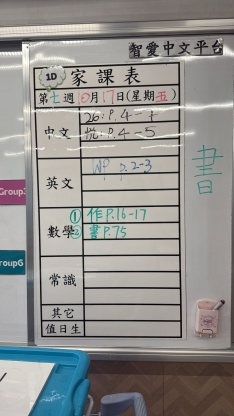 智愛中文平台
1D 家課表
第七週10月17日(星期五)
中文 26: P.4-7
悅: P.4-5
英文 WP P.2-3
數學 ① 作P.16-17
② 書P.75
常識
其它
值日生
書
Group
GroupG